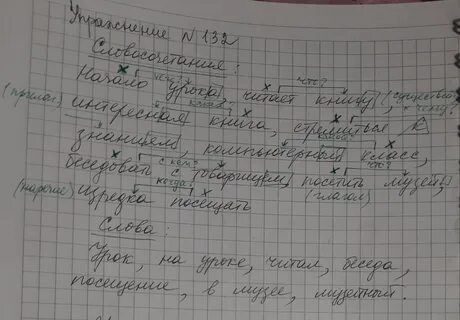 Упражнение № 132
Словосочетания:
чего? что?
Начало урока, читает книгу, (существ.)
(прилаг.) какая? к чему?
интересная книга, стремиться к
какой?
знаниям, компьютерный класс,
с кем? что?
беседовать с товарищем, посетить музей,
(наречие) когда? (глагол)
изредка посещать
Слова:
Урок, на уроке, читал, беседа,
посещение, в музее, музейный.